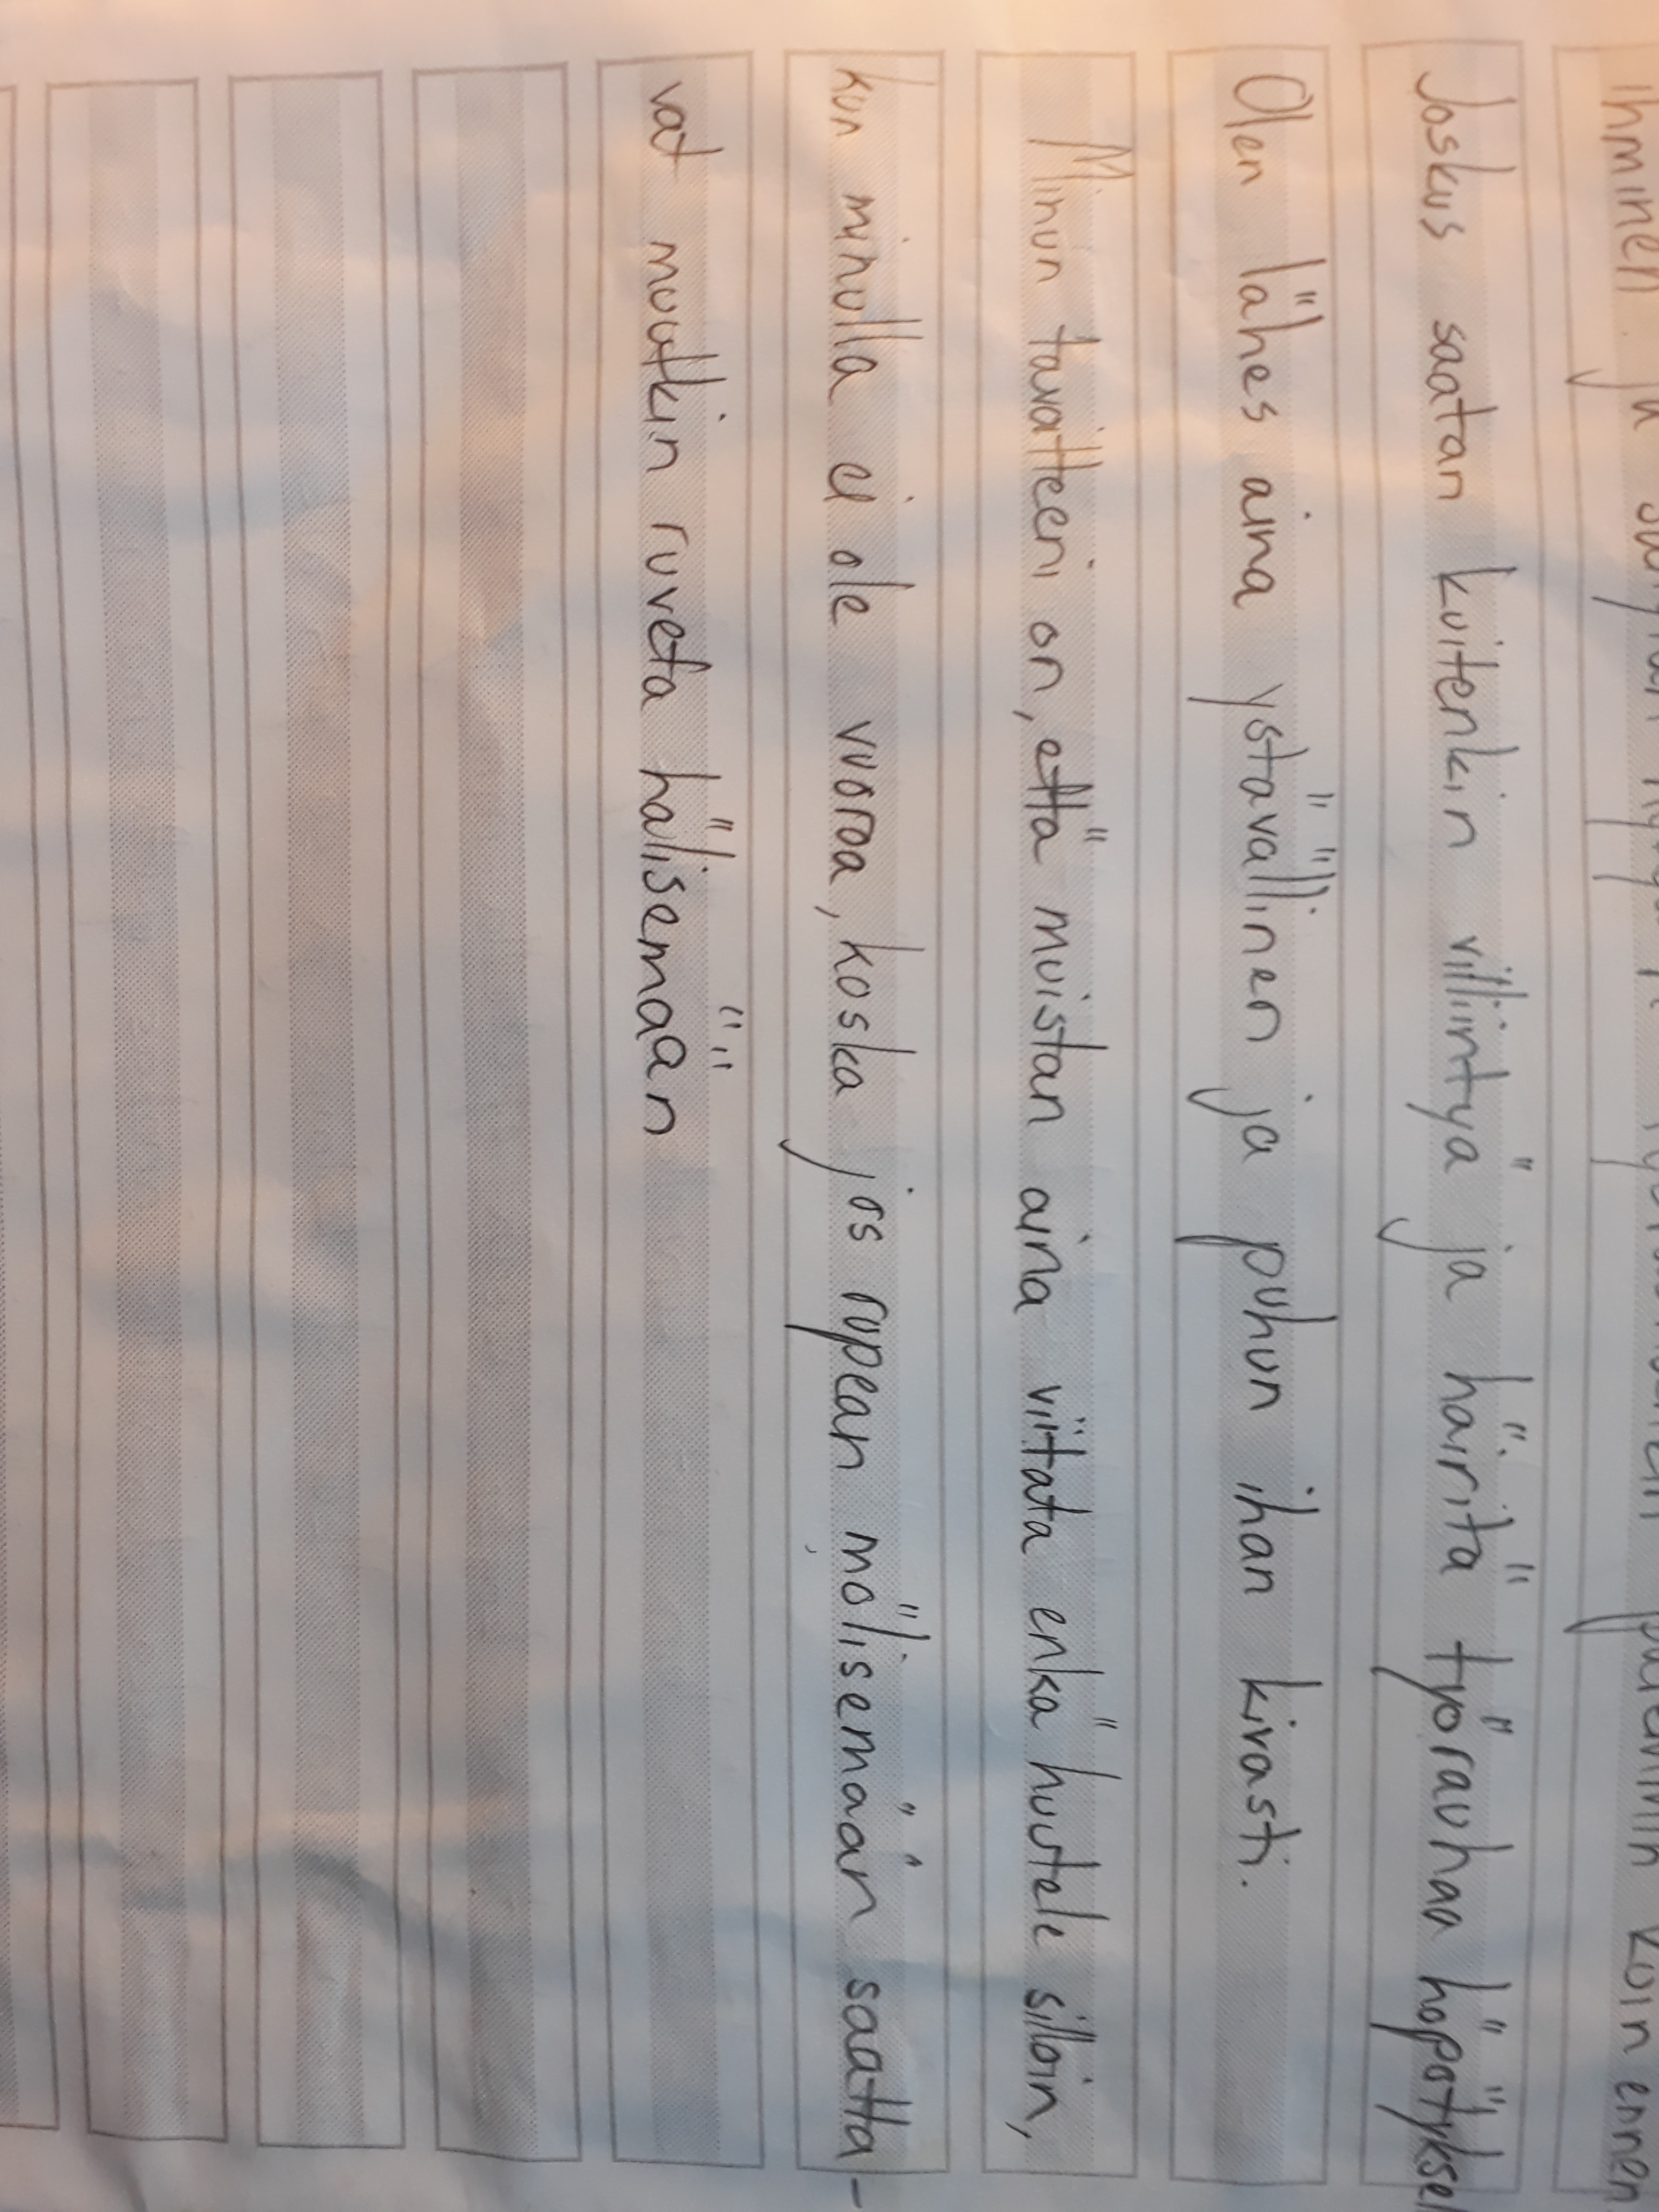 ihminen ja koin ennen
Joskus saatan kuitenkin villiintyä ja häiritä työrauhaa höpötyksel
Olen lähes aina ystävällinen ja puhun ihan kivasti.
Minun tavoitteeni on, että muistan aina viitata enkä huutele silloin,
kun minulla ei ole vuoroa, koska jos rupean mölisemään saatta-
vat muutkin ruveta hälisemään